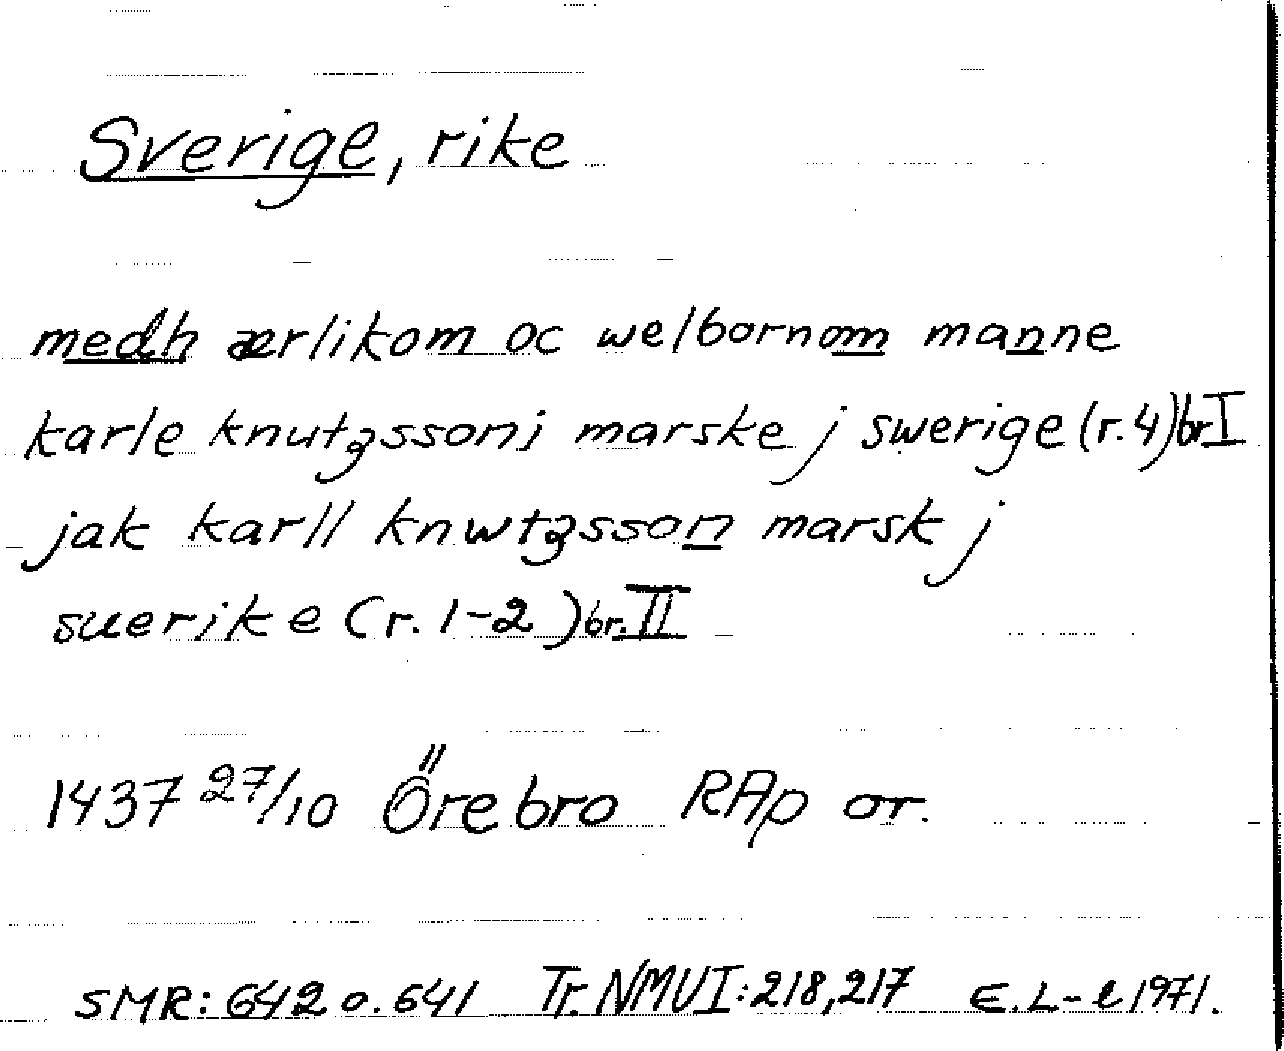 Sverige, rike
medh ærlikom oc welbornom manne
karle knutzssonj marske j swerige (r. 4) br I
jak karll knwtzsson marsk j
suerike (r. 1-2) br. II
1437 27/10 Örebro RAp or.
SMR: 642 o. 641 Tr. NMU I: 218, 217 E. L-l 1971.